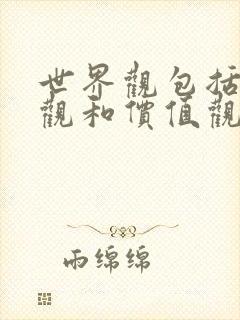 世界觀包括
觀和價值觀
雨绵绵